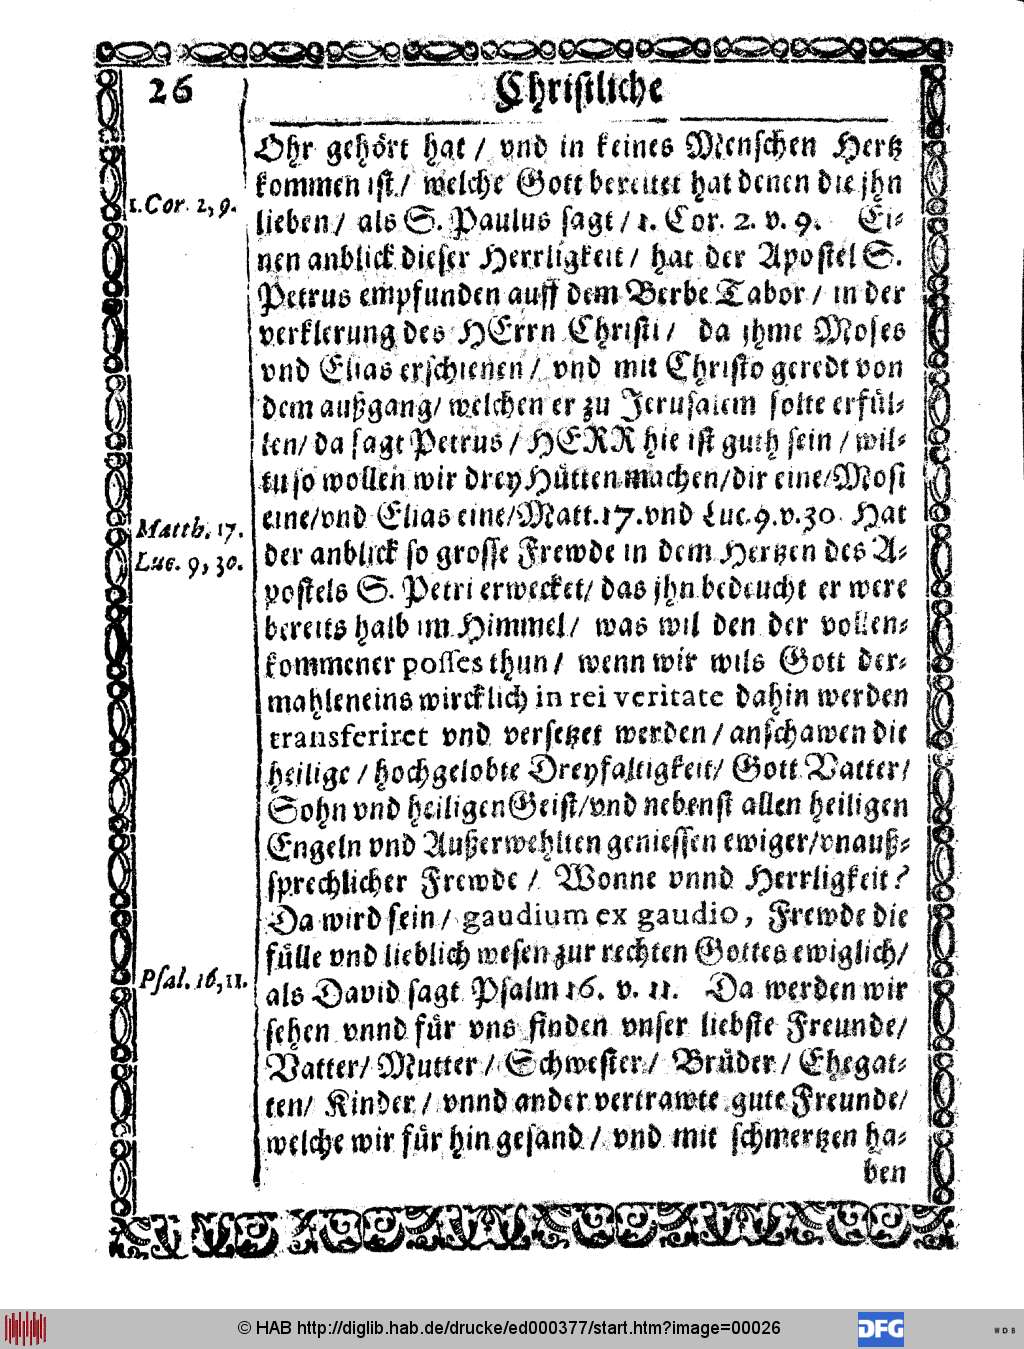 26
Christliche
Ohr gehört hat / vnd in keines Menschen Hertz
kommen ist / welche Gott bereitet hat denen die jhn
1. Cor. 2, 9.
lieben / als S. Paulus sagt / 1. Cor. 2. v. 9. Ei-
nen anblick dieser Herrligkeit / hat der Apostel S.
Petrus empfunden auff dem Berbe Tabor / in der
verklerung des HErrn Christi / da jhme Moses
vnd Elias erschienen / vnd mit Christo geredt von
dem außgang / welchen er zu Jerusalem solte erfül-
len / da sagt Petrus / HERR hie ist guth sein / wil-
tu so wollen wir drey Hütten machen / dir eine / Mosi
Matth. 17.
eine / vnd Elias eine / Matt. 17. vnd Luc. 9. v. 30. Hat
Luc. 9, 30.
der anblick so grosse Frewde in dem Hertzen des A-
postels S. Petri erwecket / das jhn bedeucht er were
bereits halb im Himmel / was wil den der vollen-
kommener posses thun / wenn wir wils Gott der-
mahleneins wircklich in rei veritate dahin werden
transferiret vnd versetzet werden / anschawen die
heilige / hochgelobte Dreyfaltigkeit / Gott Vatter /
Sohn vnd heiligen Geist / vnd nebenst allen heiligen
Engeln vnd Außerwehlten geniessen ewiger / vnauß-
sprechlicher Frewde / Wonne vnnd Herrligkeit?
Da wird sein / gaudium ex gaudio, Frewde die
fülle vnd lieblich wesen zur rechten Gottes ewiglich /
Psal. 16, 11.
als David sagt Psalm 16. v. 11. Da werden wir
sehen vnnd für vns finden vnser liebste Freunde /
Vatter / Mutter / Schwester / Brüder / Ehegat-
ten / Kinder / vnnd ander vertrawte gute Freunde /
welche wir für hin gesand / vnd mit schmertzen ha-
ben
© HAB http://diglib.hab.de/drucke/ed000377/start.htm?image=00026
DFG
WDB